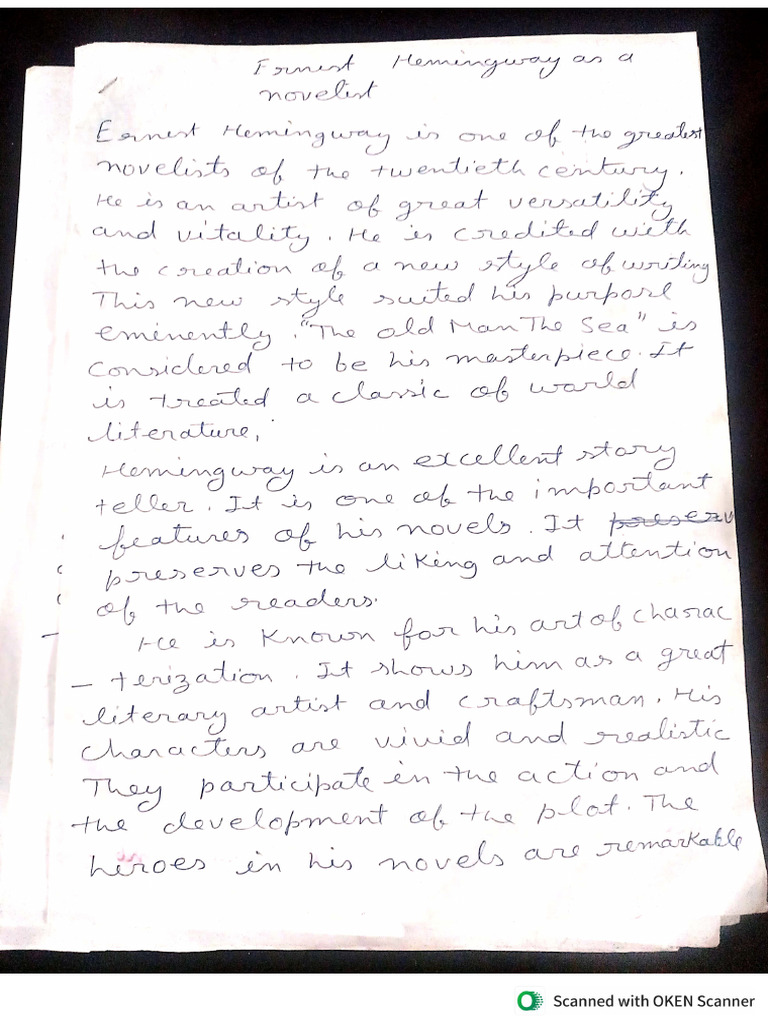 Ernest Hemingway as a
novelist
Ernest Hemingway is one of the greatest
novelists of the twentieth century.
He is an artist of great versatility
and vitality. He is credited with
the creation of a new style of writing
This new style suited his purpose
eminently. "The old Man The Sea" is
considered to be his masterpiece. It
is treated a classic of world
literature.
Hemingway is an excellent story
teller. It is one of the important
features of his novels. It preserv
preserves the liking and attention
of the readers.
He is known for his art of charac
- terization. It shows him as a great
literary artist and craftsman. His
characters are vivid and realistic
They participate in the action and
the development of the plot. The
heroes in his novels are remarkable
Scanned with OKEN Scanner